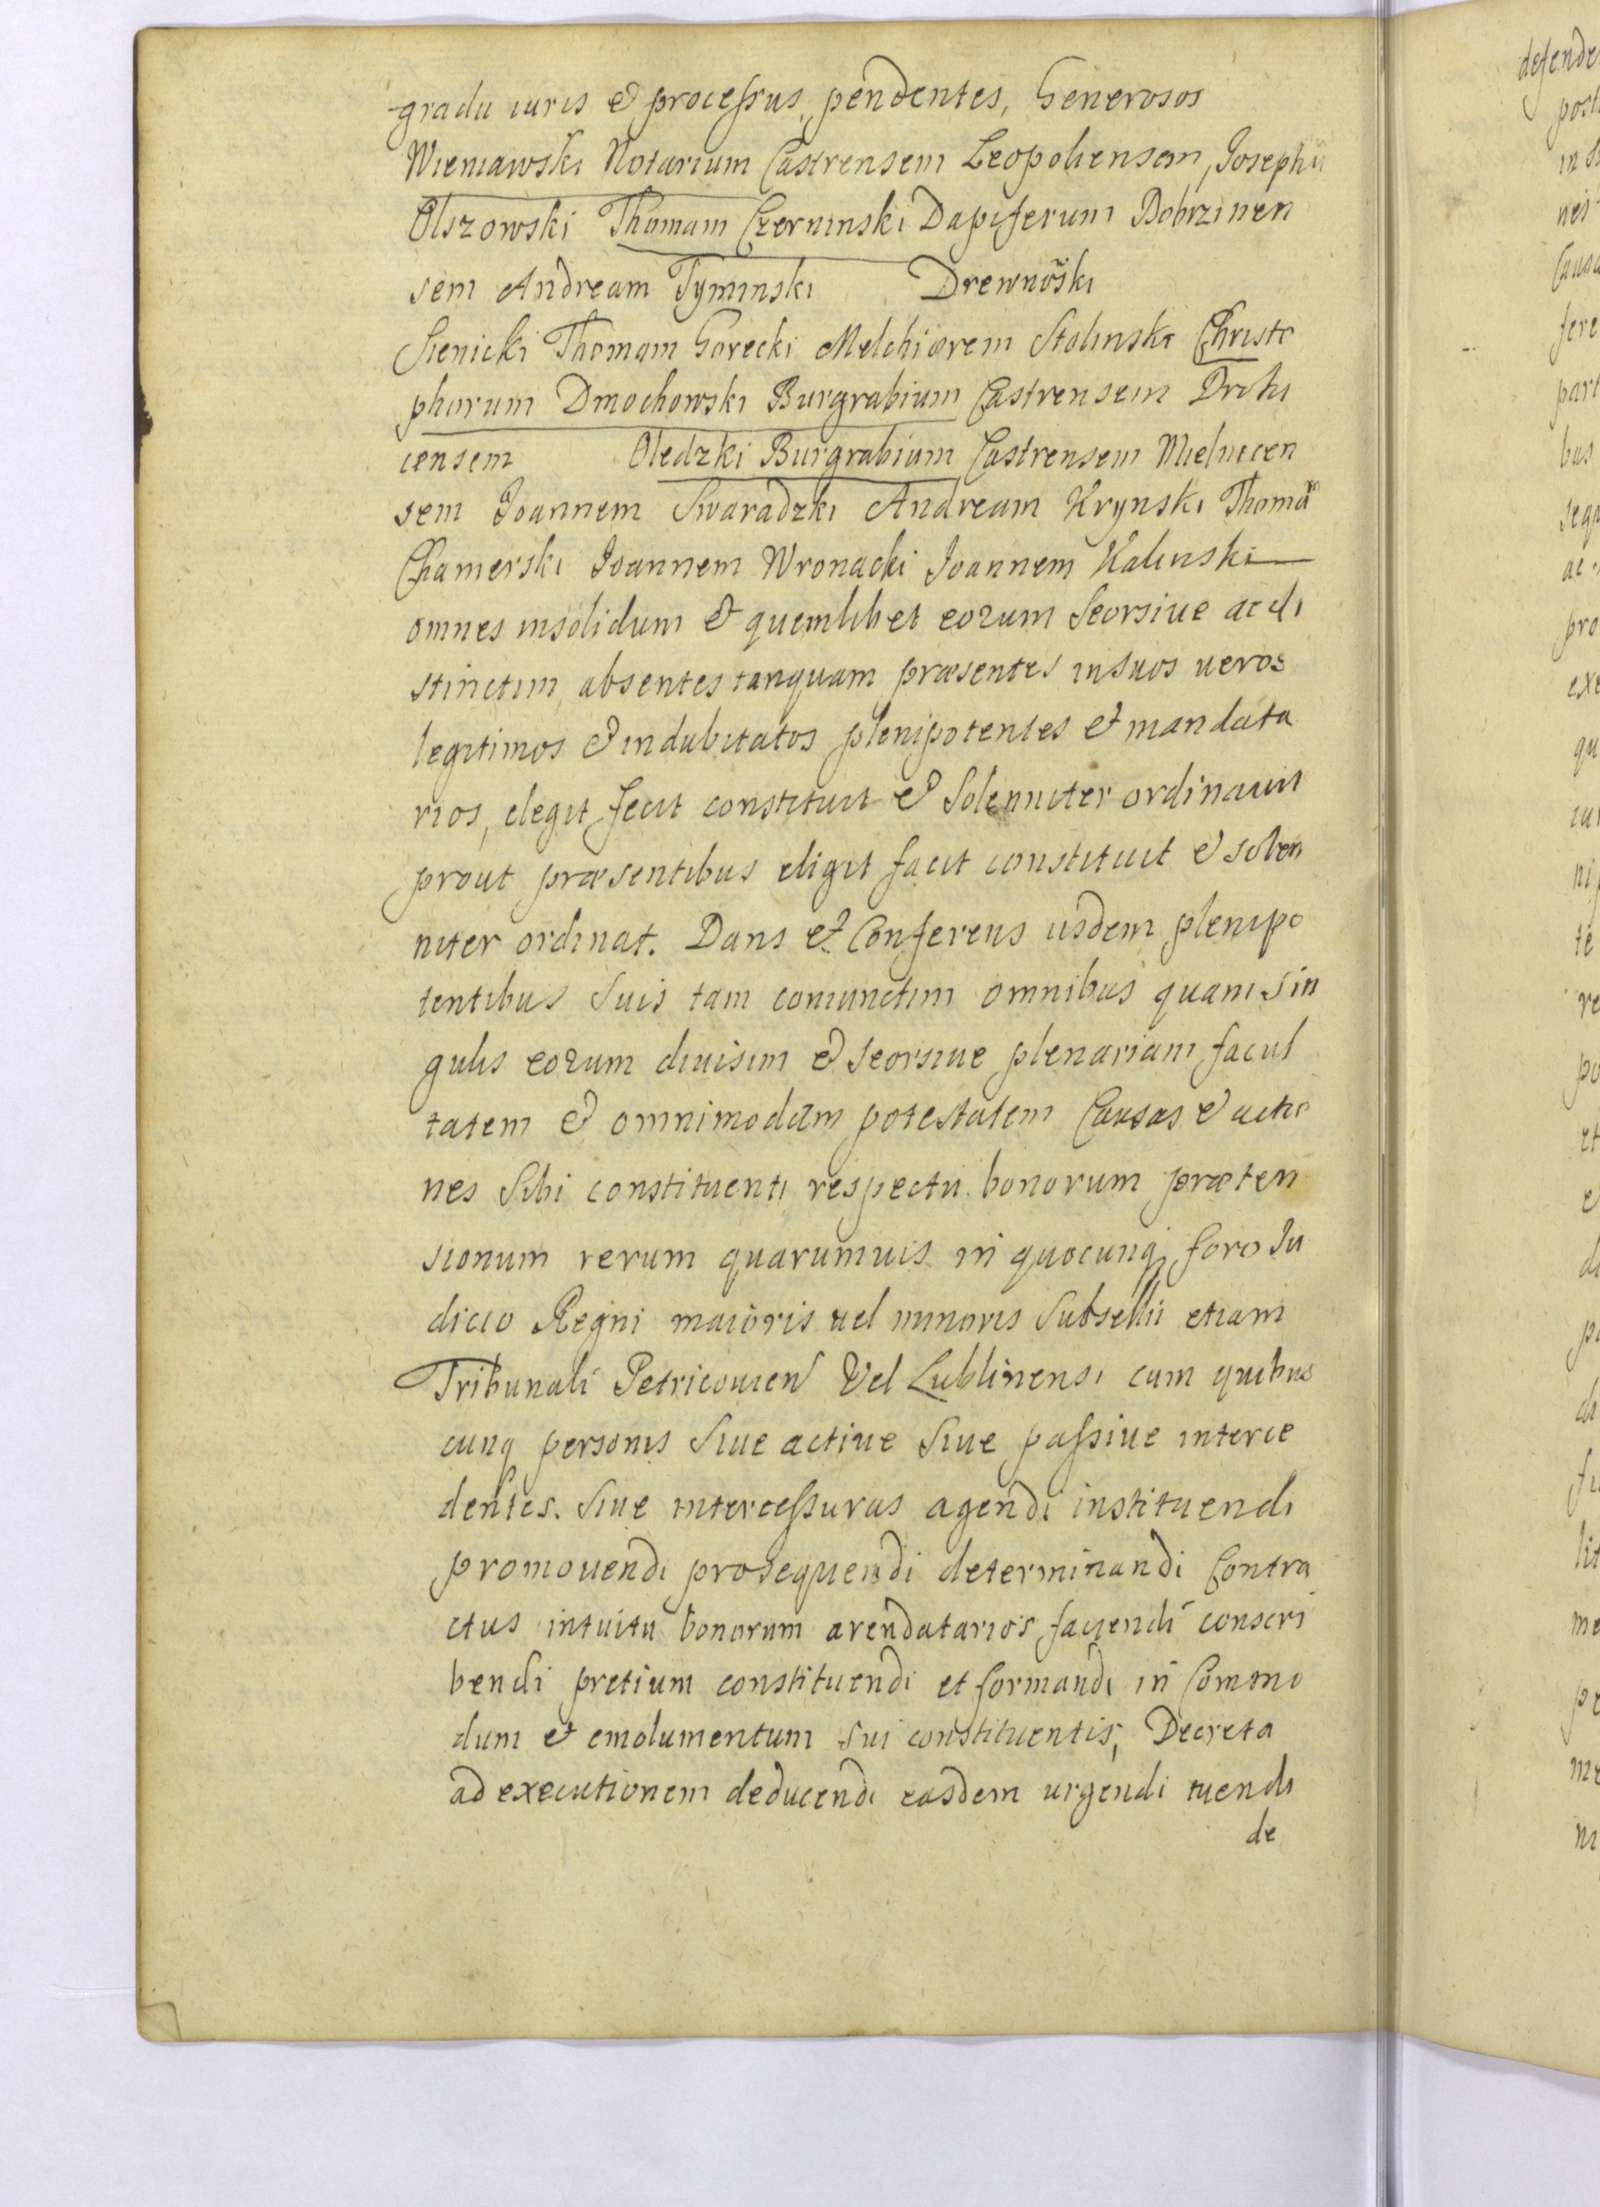 gradu iuris & processus pendentes, Generosos
Wieniawski Notarium Castrensem Leopoliensem, Josephū
Olszowski Thomam Czerninski Dapiferum Dobrzinen
sem Andream Tyminski Drewnōski
Sienicki Thomam Gorecki Melchiorem Stolinski Christo
phorum Dmochowski Burgrabium Castrensem Drohi
censem Oledzki Burgrabium Castrensem Mielnicen
sem Joannem Swaradzki Andream Krynski Thomā
Chamerski Joannem Wronacki Joannem Kalinski
omnes insolidum & quemlibet eorum seorsiue ac di
stinctim, absentes tanquam præsentes in suos ueros
legitimos & indubitatos plenipotentes & mandata
rios, elegit fecit constituit & solenniter ordinauit
prout præsentibus eligit facit constituit & solen
niter ordinat. Dans & Conferens iisdem plenipo
tentibus suis tam coniunctim omnibus quam sin
gulis eorum diuisim & seorsiue plenariam facul
tatem & omnimodam potestatem Causas & actio
nes sibi constituenti respectu bonorum præten
sionum rerum quarumuis in quocunq foro Ju
dicio Regni maioris uel minoris Subsellii etiam
Tribunali Petricouien Vel Lublinensi cum quibus
cunq personis siue actiue siue passiue interce
dentes. siue intercessuras agendi instituendi
promouendi prosequendi determinandi Contra
ctus intuitu bonorum arendatarios faciendi conscri
bendi pretium constituendi et formandi in Commo
dum & emolumentum sui constituentis, Decreta
ad executionem deducendi easdem urgendi tuendi
de
defende
post